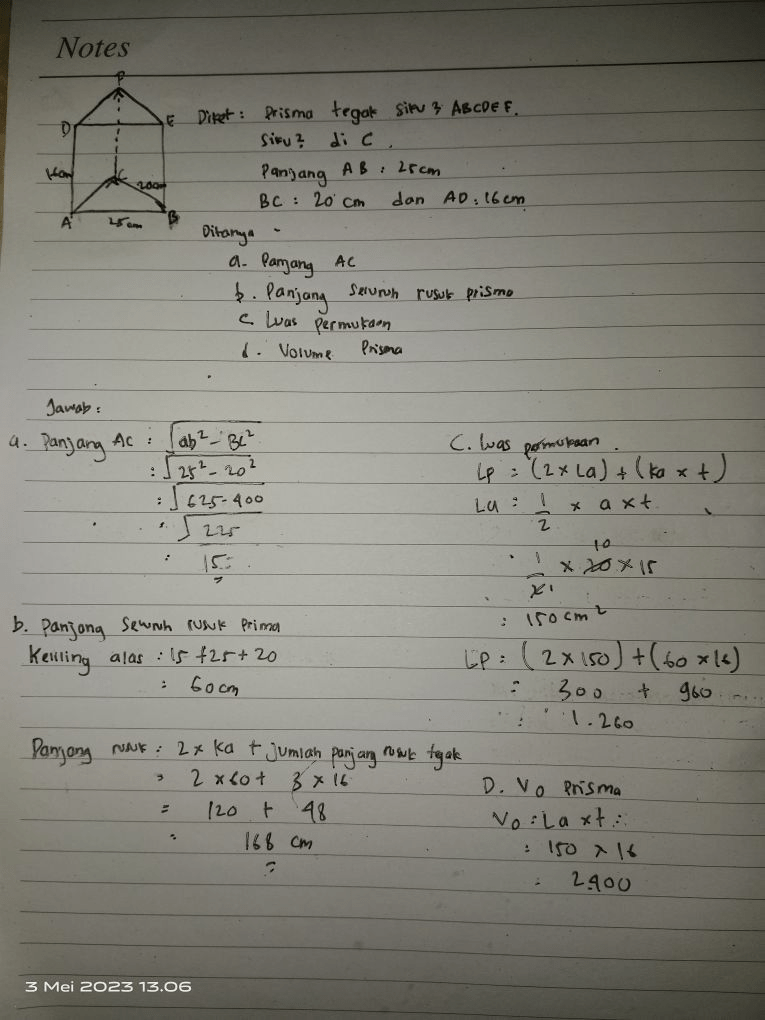 Notes
P
D
E
16cm
C
20cm
A
25cm
B
Diket : Prisma tegak siku 3 ABCDEF.
Siku2 di C.
Panjang AB : 25cm
BC : 20 cm dan AD : 16cm
Ditanya -
a. Panjang AC
b. Panjang Seluruh rusuk prisma
c. Luas permukaan
d. Volume Prisma
Jawab :
a. Panjang AC : √ab² - BC²
: √25² - 20²
: √625-400
: √225
: 15
b. Panjang Seluruh rusuk Prima
Keliling alas : 15 + 25 + 20
: 60cm
Panjang rusuk : 2 x Ka + jumlah panjang rusuk tgak
= 2 x 60 + 3 x 16
= 120 + 48
= 168 cm
C. Luas permukaan.
LP = (2 x La) + (ka x t)
La : 1/2 x a x t
: 1/2 x 20 x 15
10
1
: 150 cm²
LP = (2 x 150) + (60 x 16)
= 300 + 960
: 1.260
D. Vo Prisma
Vo : La x t :
: 150 x 16
: 2.400
3 Mei 2023 13.06